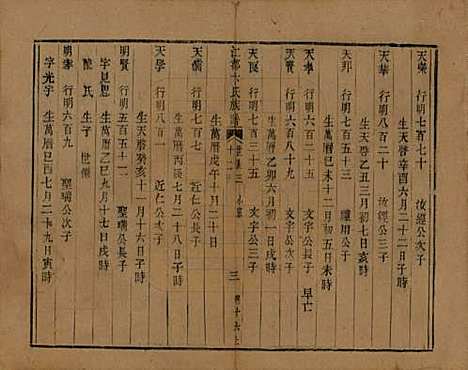 天榮 行明七百七十 汝經公次子
生天啓辛酉六月二十二日子時
天華 行明八百二十 汝經公三子
生天啓乙丑三月初七日亥時
天邦 行明七百三十三 煙用公子
生萬曆己未十二月初五日未時
天奉 行明六百八十九 文字公長子 早亡
天良 行明七百三十五 文字公三子
生萬曆乙卯六月初一日戌時
江都卞氏族譜
三
天儒 行明七百二 近仁公長子
生萬曆丙辰七月二十八日子時
天學 行明八百七 近仁公次子
生天啓癸亥十一月十六日子時
明賢 行明五百五十一 聖瑞公長子
字見思 生萬曆己酉九月十七日戌時
陳氏 生子 世衡
明泰 行明六百九 聖瑞公次子
字光宇 生萬曆己酉七月二十九日寅時